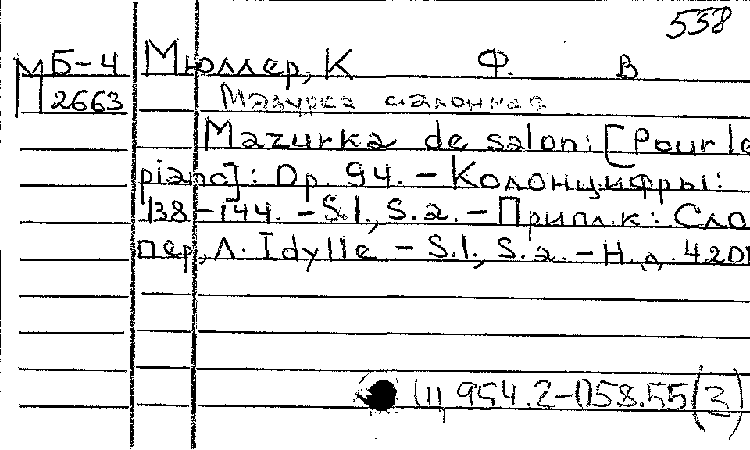 558
МБ-4 Мюллер, К Ф. В
2663 Мазурка салонная
Mazurka de salon: [Pour le
piano]: Op. 94. - Колонцифры:
138-144. - S.l., S.a. - Припл.к: Сло
пер, Л. Idylle - S.l., S.a. - Н.д. 420
(1) 954.2-1)58.55(3)